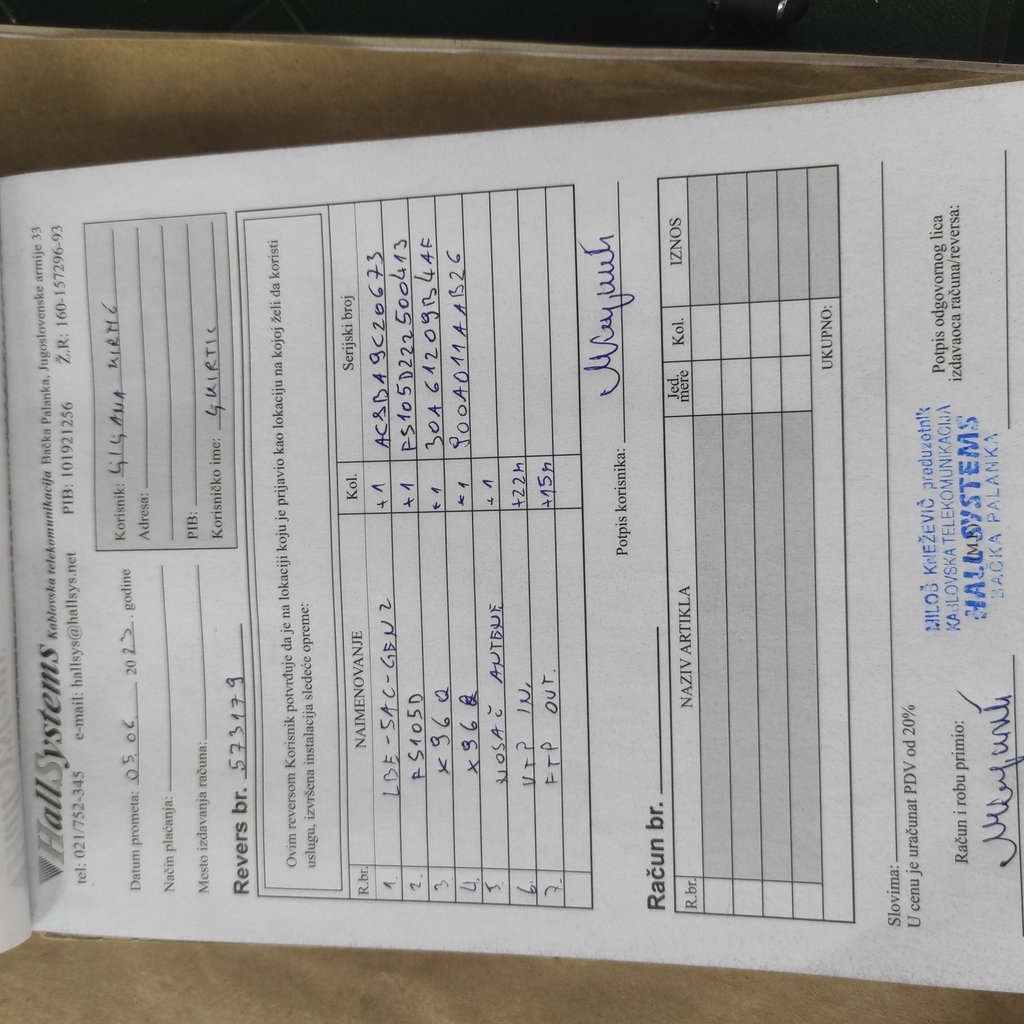 HallSystems Kablovska telekomunikacija Bačka Palanka, Jugoslovenske armije 33
tel: 021/752-345 e-mail: hallsys@hallsys.net PIB: 101921256 Ž.R: 160-157296-93
Datum prometa: 05.06 2023. godine
Način plaćanja:
Mesto izdavanja računa:
Korisnik:
Adresa:
PIB:
Korisničko ime:
Revers br. 573179
Ovim reversom Korisnik potvrđuje da je na lokaciji koju je prijavio kao lokaciju na kojoj želi da koristi
uslugu, izvršena instalacija sledeće opreme:
R.br. NAIMENOVANJE Kol. Serijski broj
1. LBE-5AC-GEN2 +1
2. FS105D +1 FS105D222500413
3. X96Q +1 30A61209B4AF
4. X96Q +1 900A011AAB26
5. NOSAČ ANTENE +1
6. UTP IN. +22m
7. FTP OUT. +15m
Potpis korisnika:
Račun br.
R.br. NAZIV ARTIKLA Jed. mere Kol. IZNOS
UKUPNO:
Slovima:
U cenu je uračunat PDV od 20%
Račun i robu primio:
(M.P.)
MILOŠ KNEŽEVIĆ preduzetnik
KABLOVSKA TELEKOMUNIKACIJA
HALLSYSTEMS
BAČKA PALANKA
Potpis odgovornog lica
izdavaoca računa/reversa: